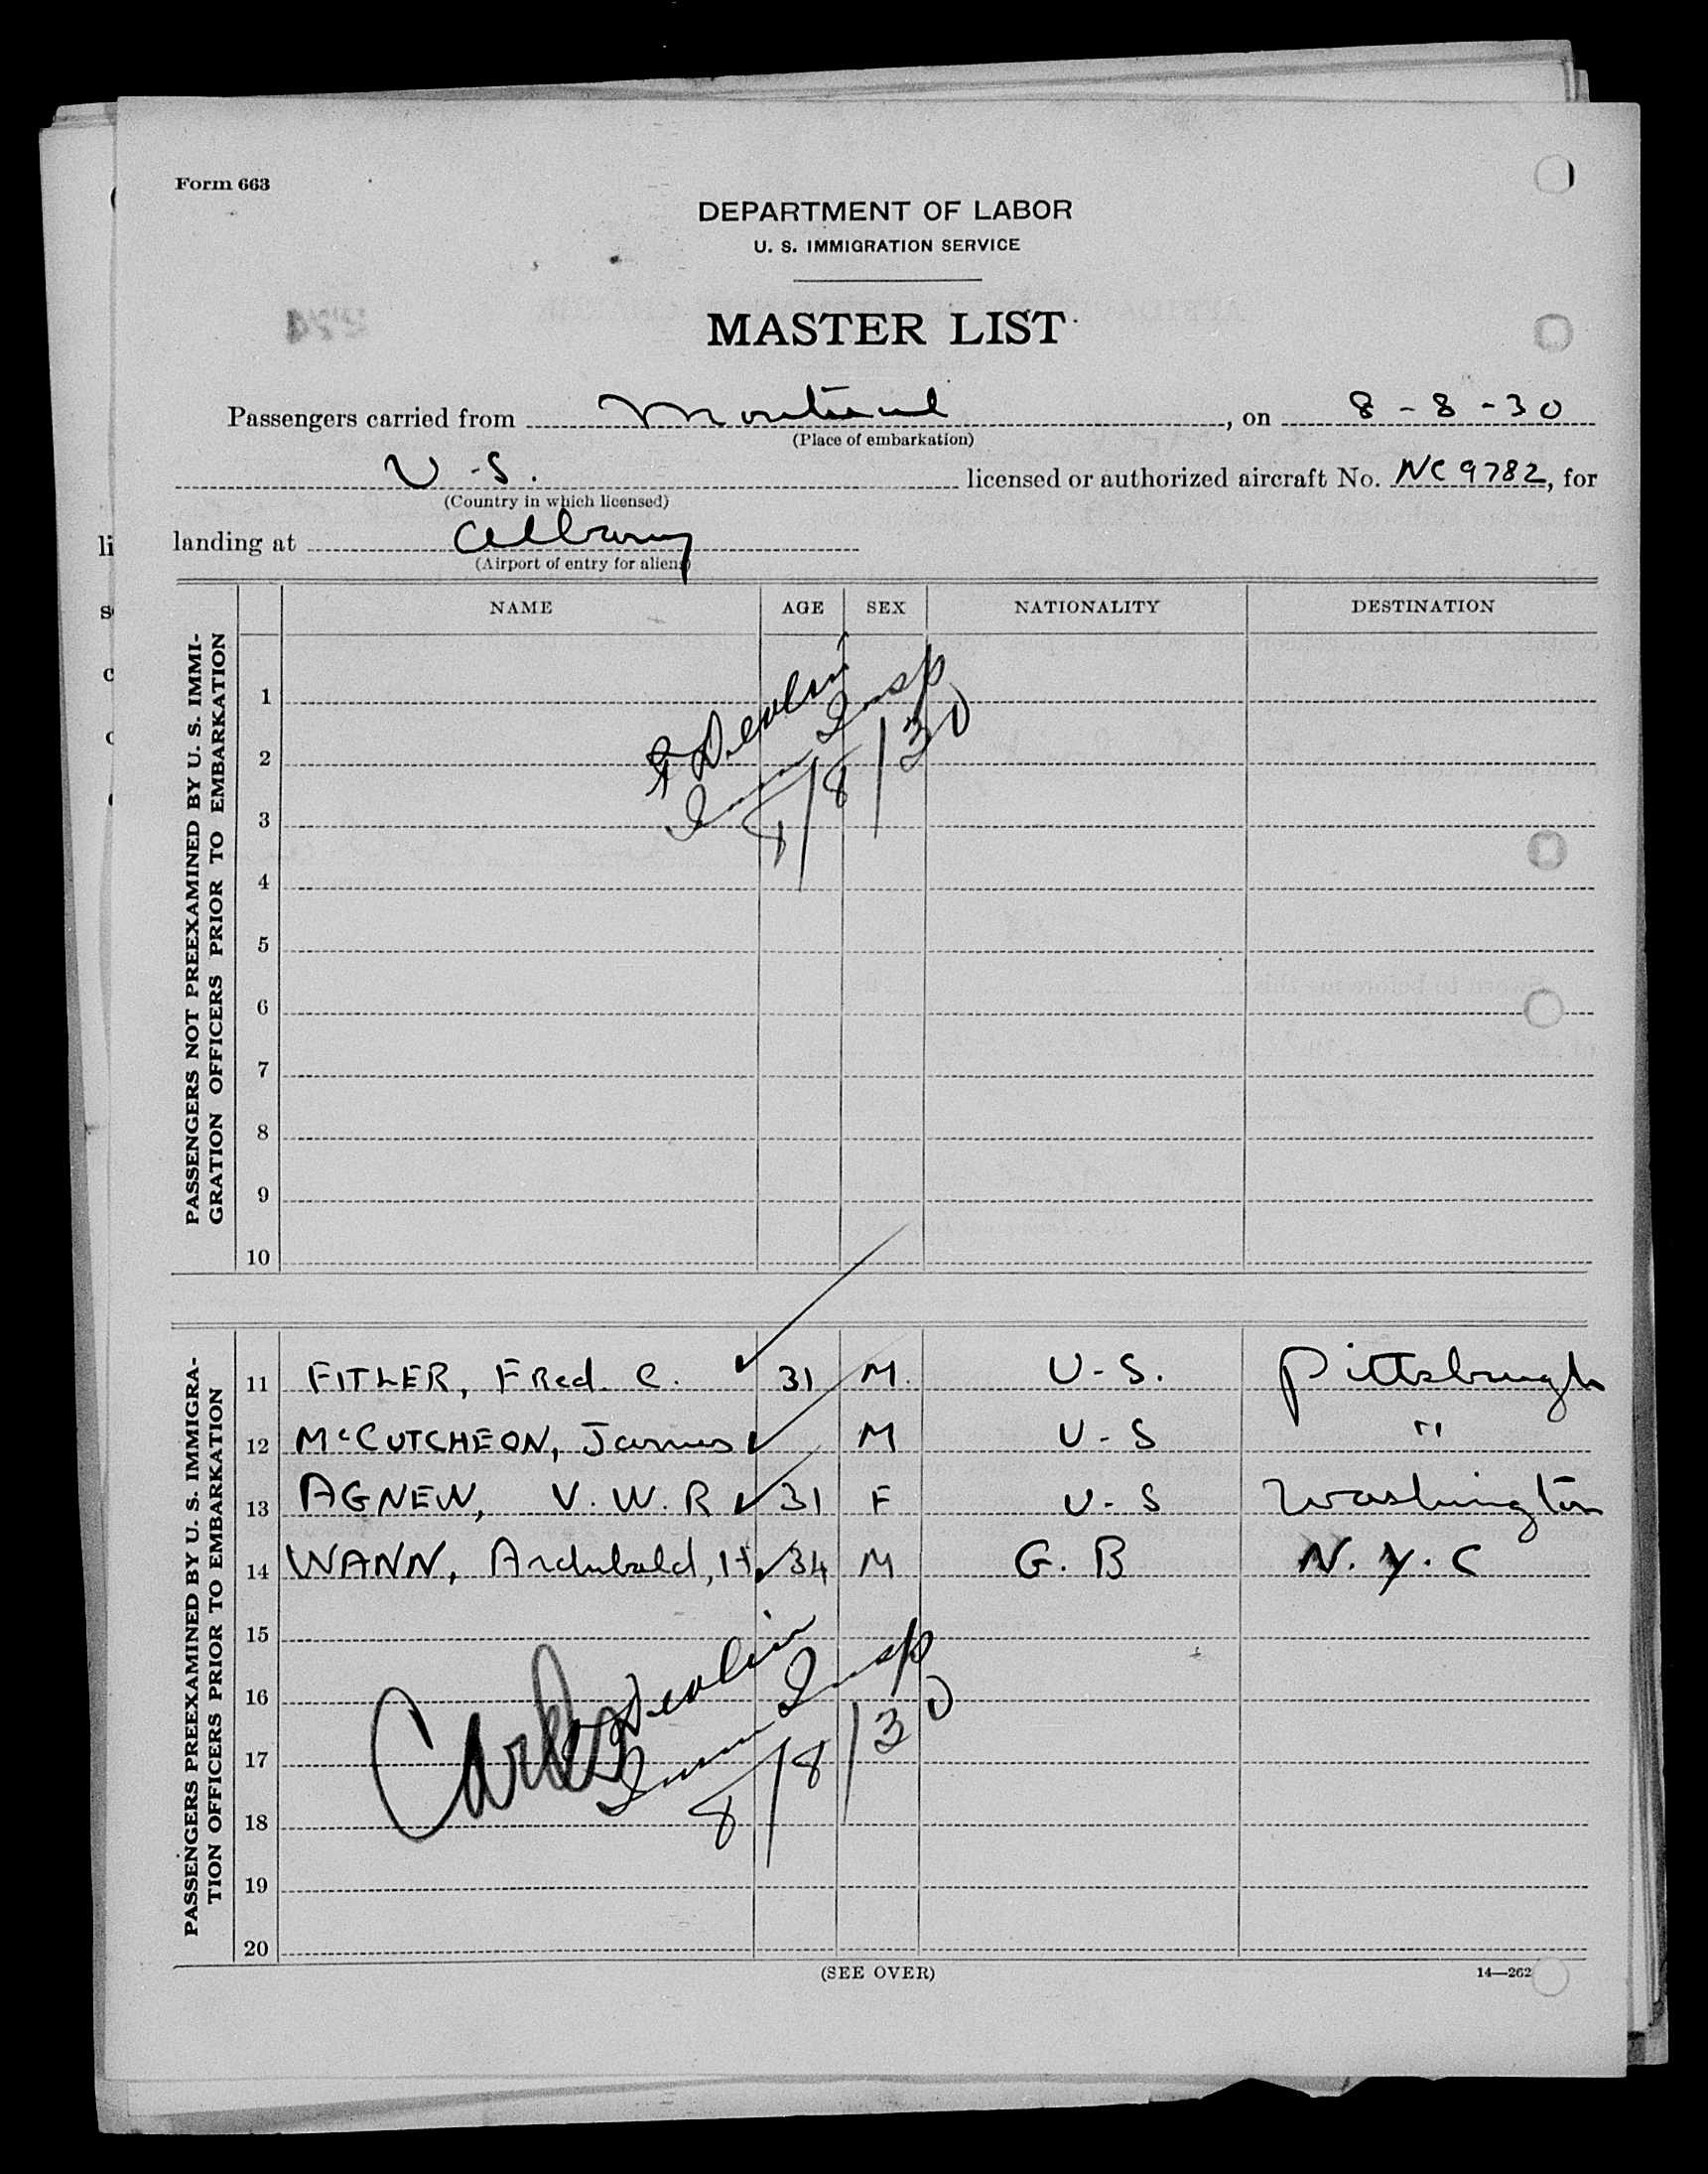 Form 663
DEPARTMENT OF LABOR
U. S. IMMIGRATION SERVICE
MASTER LIST
Passengers carried from Montreal, on 8-8-30
(Place of embarkation)
U-S. licensed or authorized aircraft No. NC9782, for
(Country in which licensed)
landing at Albany
(Airport of entry for aliens)
PASSENGERS NOT PREEXAMINED BY U. S. IMMI-
GRATION OFFICERS PRIOR TO EMBARKATION
NAME AGE SEX NATIONALITY DESTINATION
1
2
3
4
5
6
7
8
9
10
Devlin
Imm Insp
8/8/30
PASSENGERS PREEXAMINED BY U. S. IMMIGRA-
TION OFFICERS PRIOR TO EMBARKATION
11 FITLER, FRed C. 31 M. U-S. Pittsburgh
12 McCUTCHEON, James M U-S "
13 AGNEW, V.W.R 31 F U-S Washington
14 WANN, Archibald, H 34 M G.B N.Y.C
15
16
17
18
19
20
Devlin
Imm Insp
8/8/30
(SEE OVER)
14—262